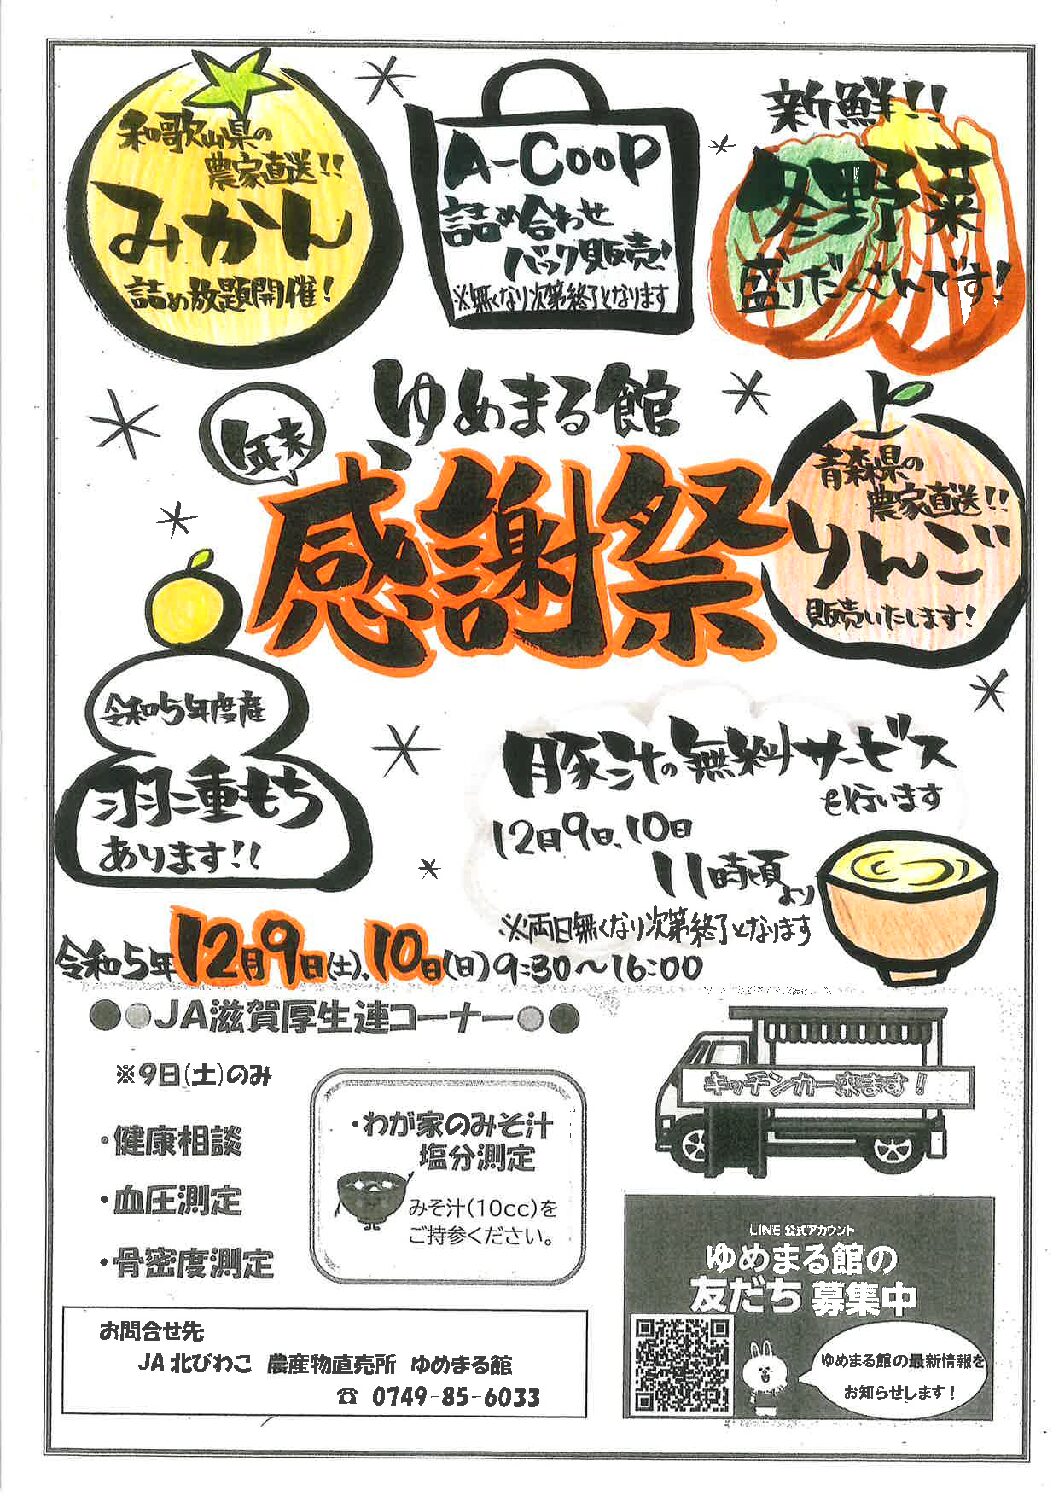 和歌山県の
農家直送!!
みかん
詰め放題開催!
A-COOP
詰め合わせ
バック販売!
※無くなり次第終了となります
新鮮!!
冬野菜
盛りだくさんです!
年末
ゆめまる館
感謝祭
青森県の
農家直送!!
りんご
販売いたします!
令和5年度産
羽二重もち
あります!!
豚汁の無料サービス
も行います
12月9日、10日
11時頃より
※両日無くなり次第終了となります
令和5年12月9日(土)、10日(日)9:30〜16:00
●●JA滋賀厚生連コーナー●●
※9日(土)のみ
・健康相談
・血圧測定
・骨密度測定
・わが家のみそ汁
塩分測定
みそ汁(10cc)を
ご持参ください。
キッチンカー来ます!
LINE 公式アカウント
ゆめまる館の
友だち 募集中
ゆめまる館の最新情報を
お知らせします!
お問合せ先
JA北びわこ 農産物直売所 ゆめまる館
☎ 0749-85-6033